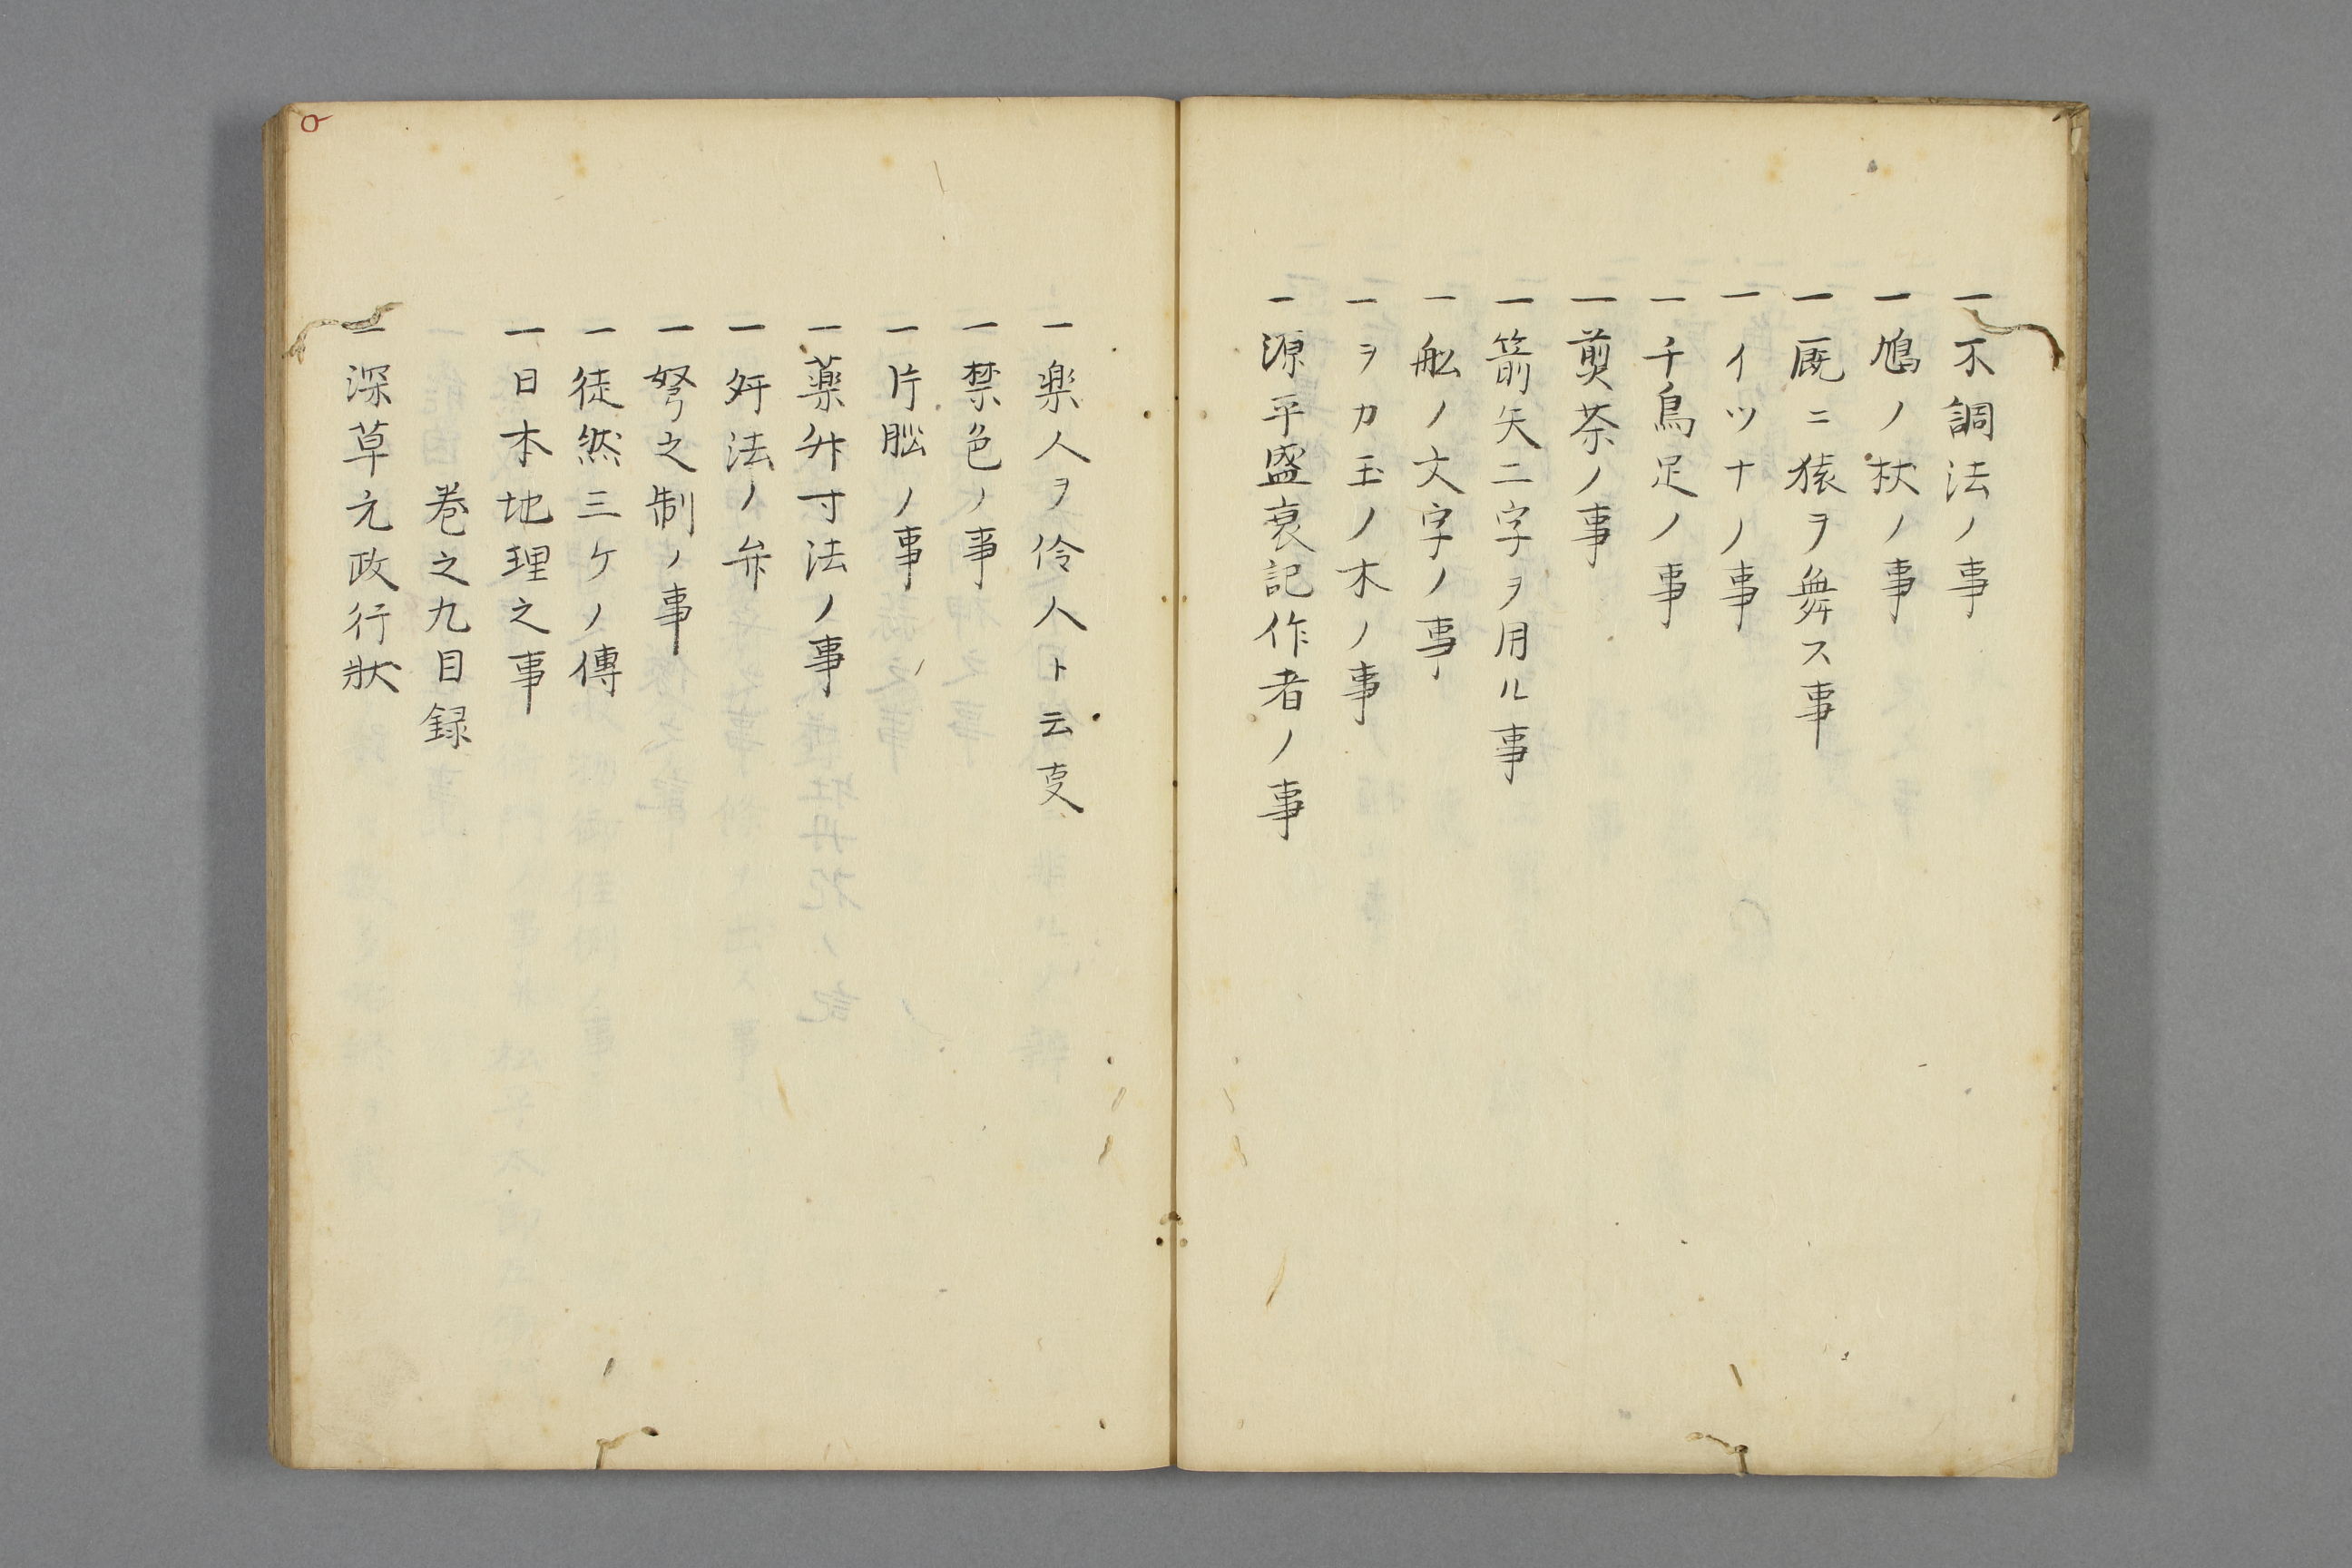 一不調法ノ事
一鳩ノ杖ノ事
一厩ニ猿ヲ舞ス事
一イツナノ事
一千鳥足ノ事
一煎茶ノ事
一箭矢二字ヲ用ル事
一舩ノ文字ノ事
一ヲカ玉ノ木ノ事
一源平盛衰記作者ノ事
一楽人ヲ伶人ト云叓
一禁色ノ事
一片脳ノ事
一薬升寸法ノ事
一法ノ弁
一弩之制ノ事
一徒然三ケノ傳
一日本地理之事
巻之九目録
一深草元政行狀